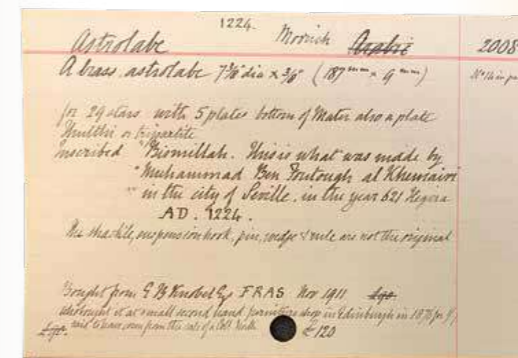 1224.
Astrolabe Moorish Arabic 2008
A brass astrolabe 7 3/8" dia x 3/8" (187 mm x 9 mm)
for 29 stars with 5 plates bottom of Mater also a plate
or tripartite
inscribed "Bismillah. This is what was made by
"Muhammad Ben Foutough al Khemairi
" in the city of Seville. in the year 621 Hegira
AD. 1224.
The shackle, suspension hook, pin, wedge & rule are not the original
Bought from E B Knobel Esq FRAS Nov 1911
who bought it at small second hand furniture shop in Edinburgh in 1876 for
said to have come from the sale of a £120